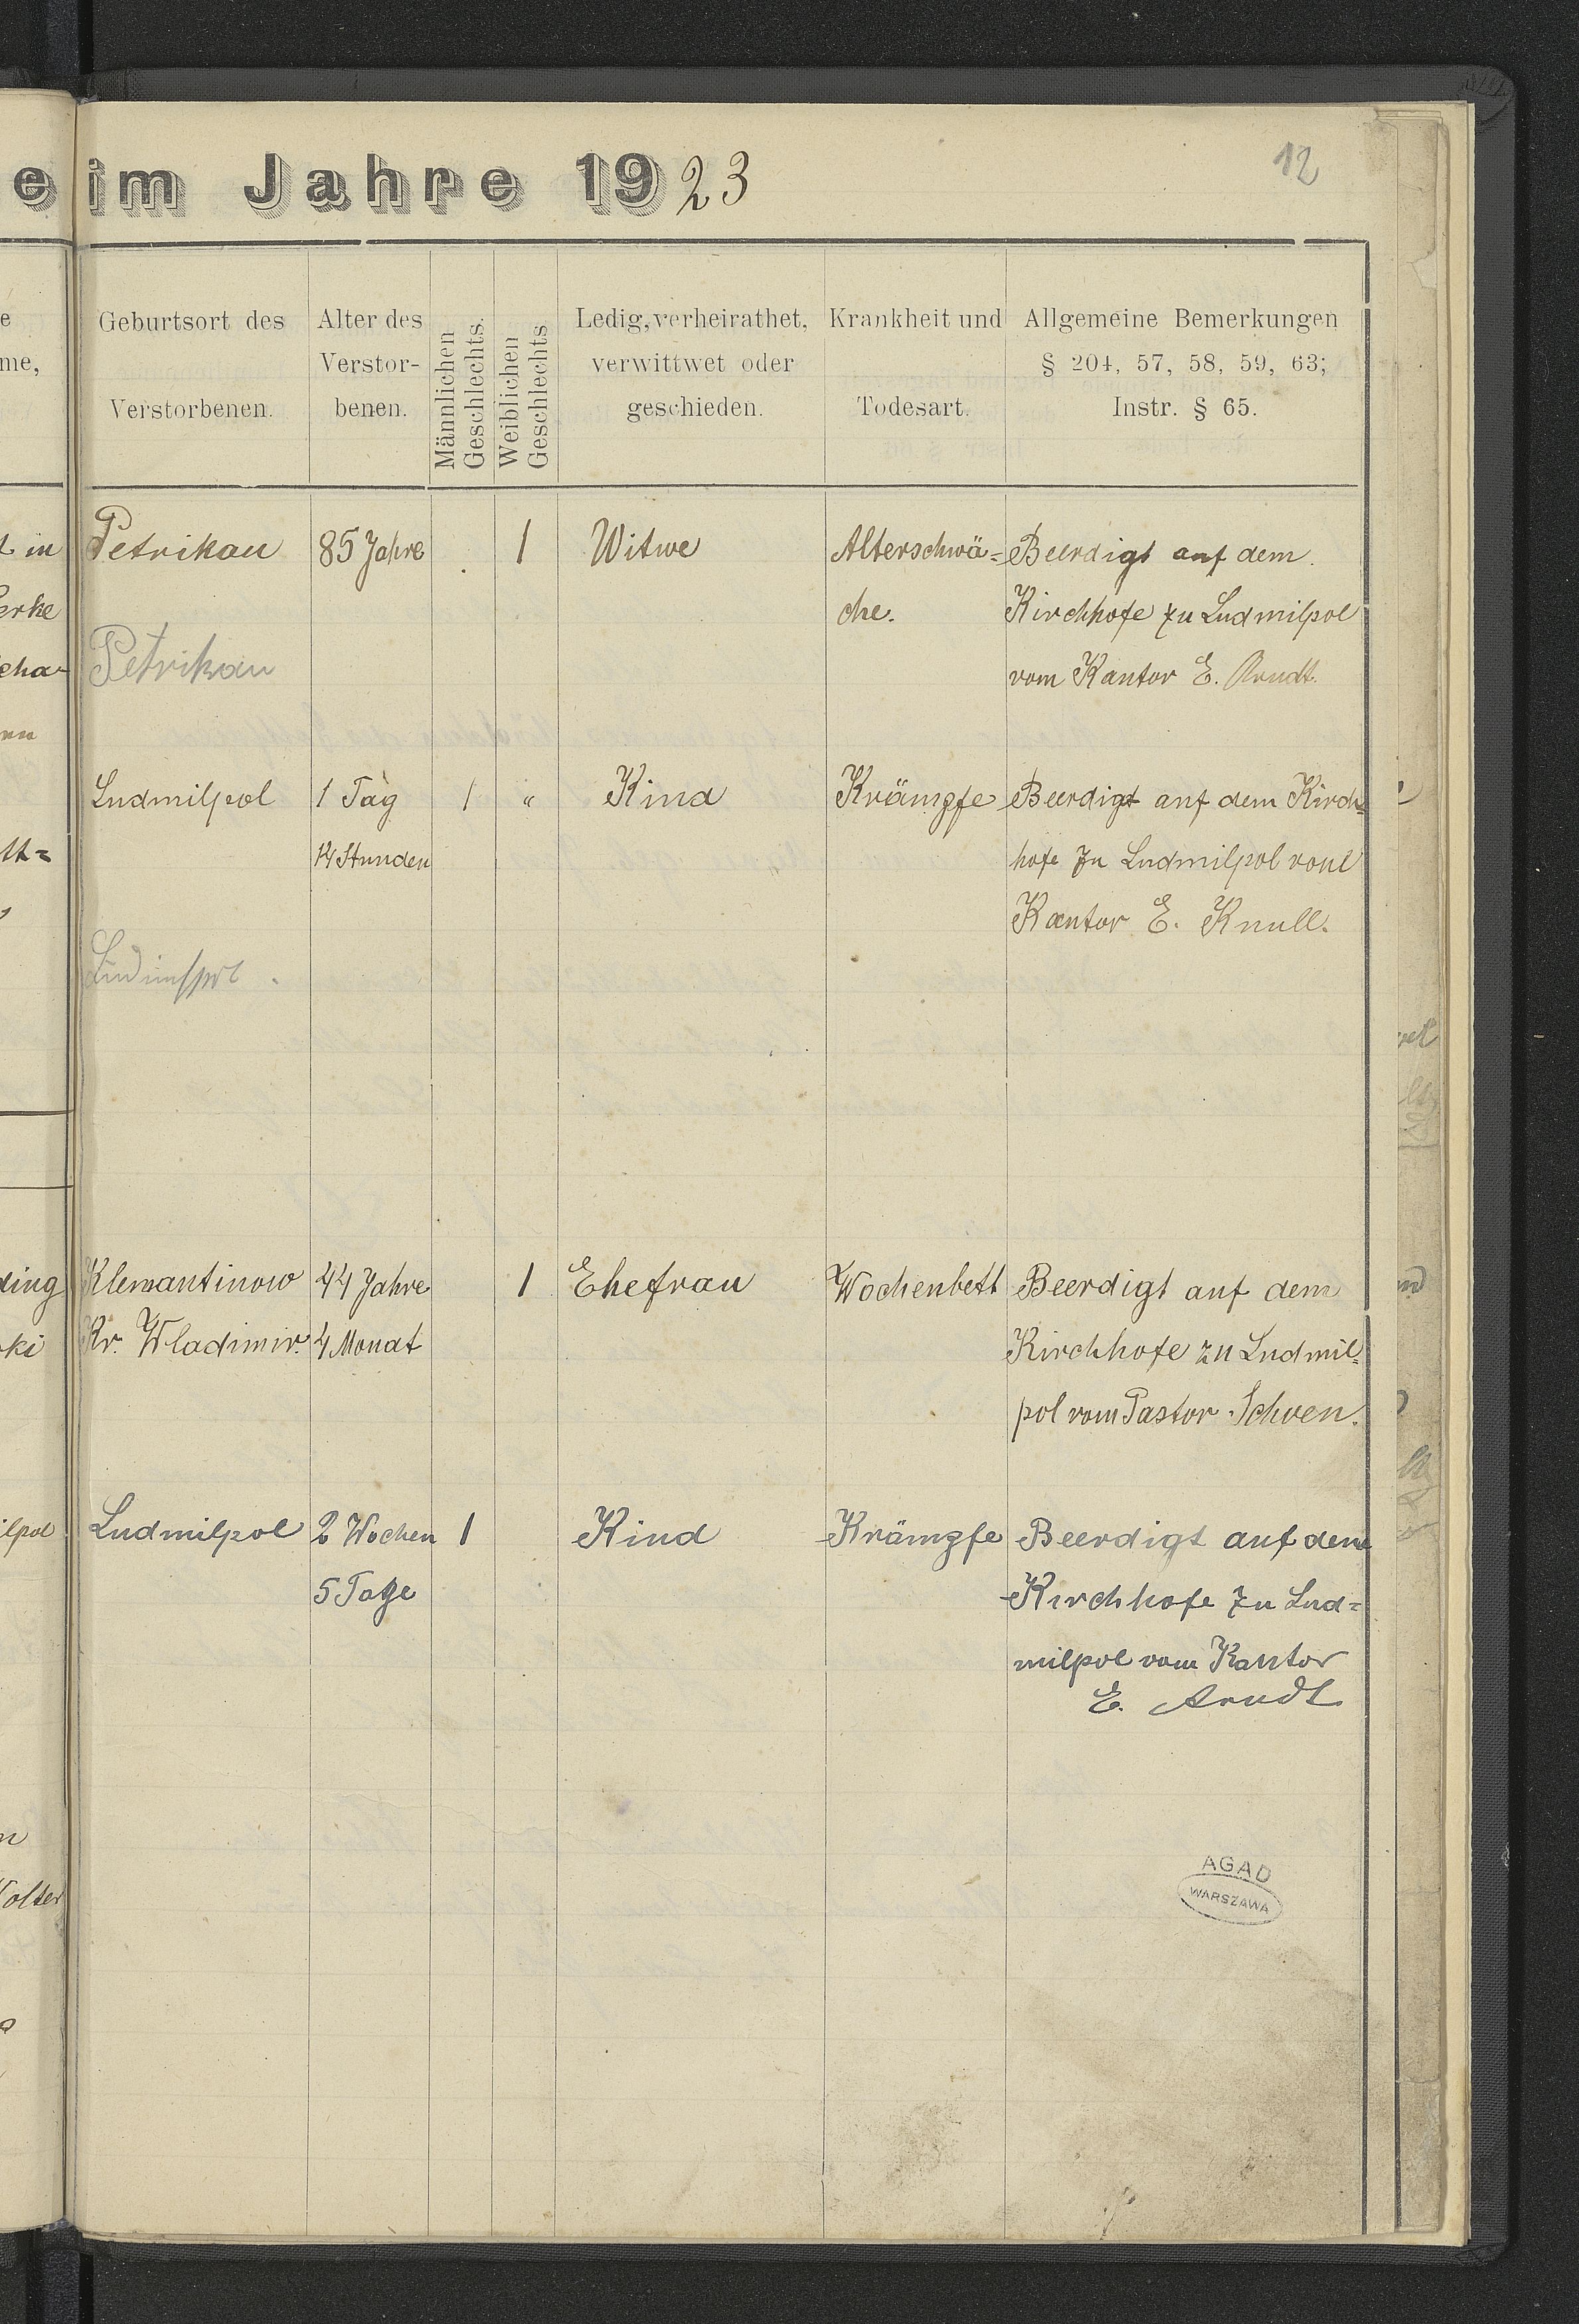 e im Jahre 1923
12
Geburtsort des
Verstorbenen.
Alter des
Verstor-
benen.
Männlichen
Geschlechts.
Weiblichen
Geschlechts
Ledig, verheirathet,
verwittwet oder
geschieden.
Krankheit und
Todesart.
Allgemeine Bemerkungen
§ 204, 57, 58, 59, 63;
Instr. § 65.
Petrikau
85 Jahre
1
Witwe
Alterschwä=
che.
Beerdigt auf dem
Kirchhofe zu Ludmilpol
vom Kantor E. Arndt.
Petrikau
Ludmilpol
1 Tag
14 Stunden
1
"
Kind
Krämpfe
Beerdigt auf dem Kirch=
hofe zu Ludmilpol vom
Kantor E. Knull.
Klemantinow
Kr. Wladimir.
44 Jahre
4 Monat
1
Ehefrau
Wochenbett
Beerdigt auf dem
Kirchhofe zu Ludmil=
pol vom Pastor Schoen.
Ludmilpol
2 Wochen
5 Tage
1
Kind
Krämpfe
Beerdigt auf dem
Kirchhofe zu Lud=
milpol vom Kantor
E. Arndt
AGAD
WARSZAWA